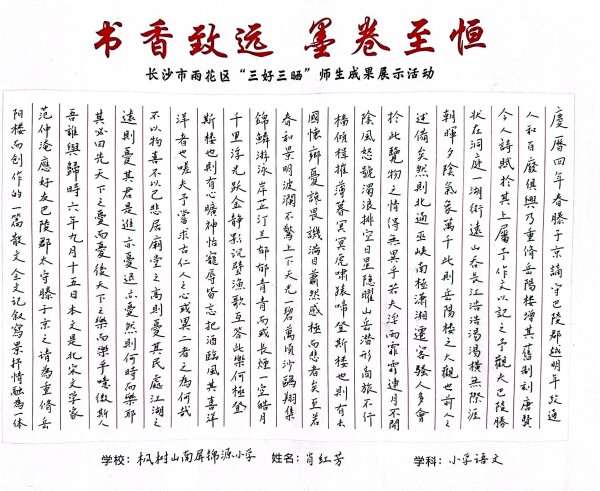 书香致远 墨卷至恒
长沙市雨花区“三好三晒”师生成果展示活动
慶曆四年春滕子京謫守巴陵郡越明年政通
人和百廢俱興乃重修岳陽樓增其舊制刻唐賢
今人詩賦於其上屬予作文以記之予觀夫巴陵勝
狀在洞庭一湖銜遠山吞長江浩浩湯湯橫無際涯
朝暉夕陰氣象萬千此則岳陽樓之大觀也前人之
述備矣然則北通巫峽南極瀟湘遷客騷人多會
於此覽物之情得無異乎若夫淫雨霏霏連月不開
陰風怒號濁浪排空日星隱曜山岳潛形商旅不行
檣傾楫摧薄暮冥冥虎嘯猿啼登斯樓也則有去
國懷鄉憂讒畏譏滿目蕭然感極而悲者矣至若
春和景明波瀾不驚上下天光一碧萬頃沙鷗翔集
錦鱗游泳岸芷汀兰郁郁青青而或長煙一空皓月
千里浮光跃金静影沉璧漁歌互答此樂何極登
斯樓也則有心曠神怡寵辱皆忘把酒臨風其喜洋
洋者也嗟夫予嘗求古仁人之心或異二者之為何哉
不以物喜不以己悲居廟堂之高則憂其民處江湖之
遠則憂其君是進亦憂退亦憂然則何時而樂耶
其必曰先天下之憂而憂後天下之樂而樂乎噫微斯人
吾誰與歸時六年九月十五日本文是北宋文學家
范仲淹應好友巴陵郡太守滕子京之請為重修岳
陽樓而創作的一篇散文全文記叙寫景抒情融為一体
学校：枫树山南屏锦源小学 姓名：肖红芳 学科：小学语文